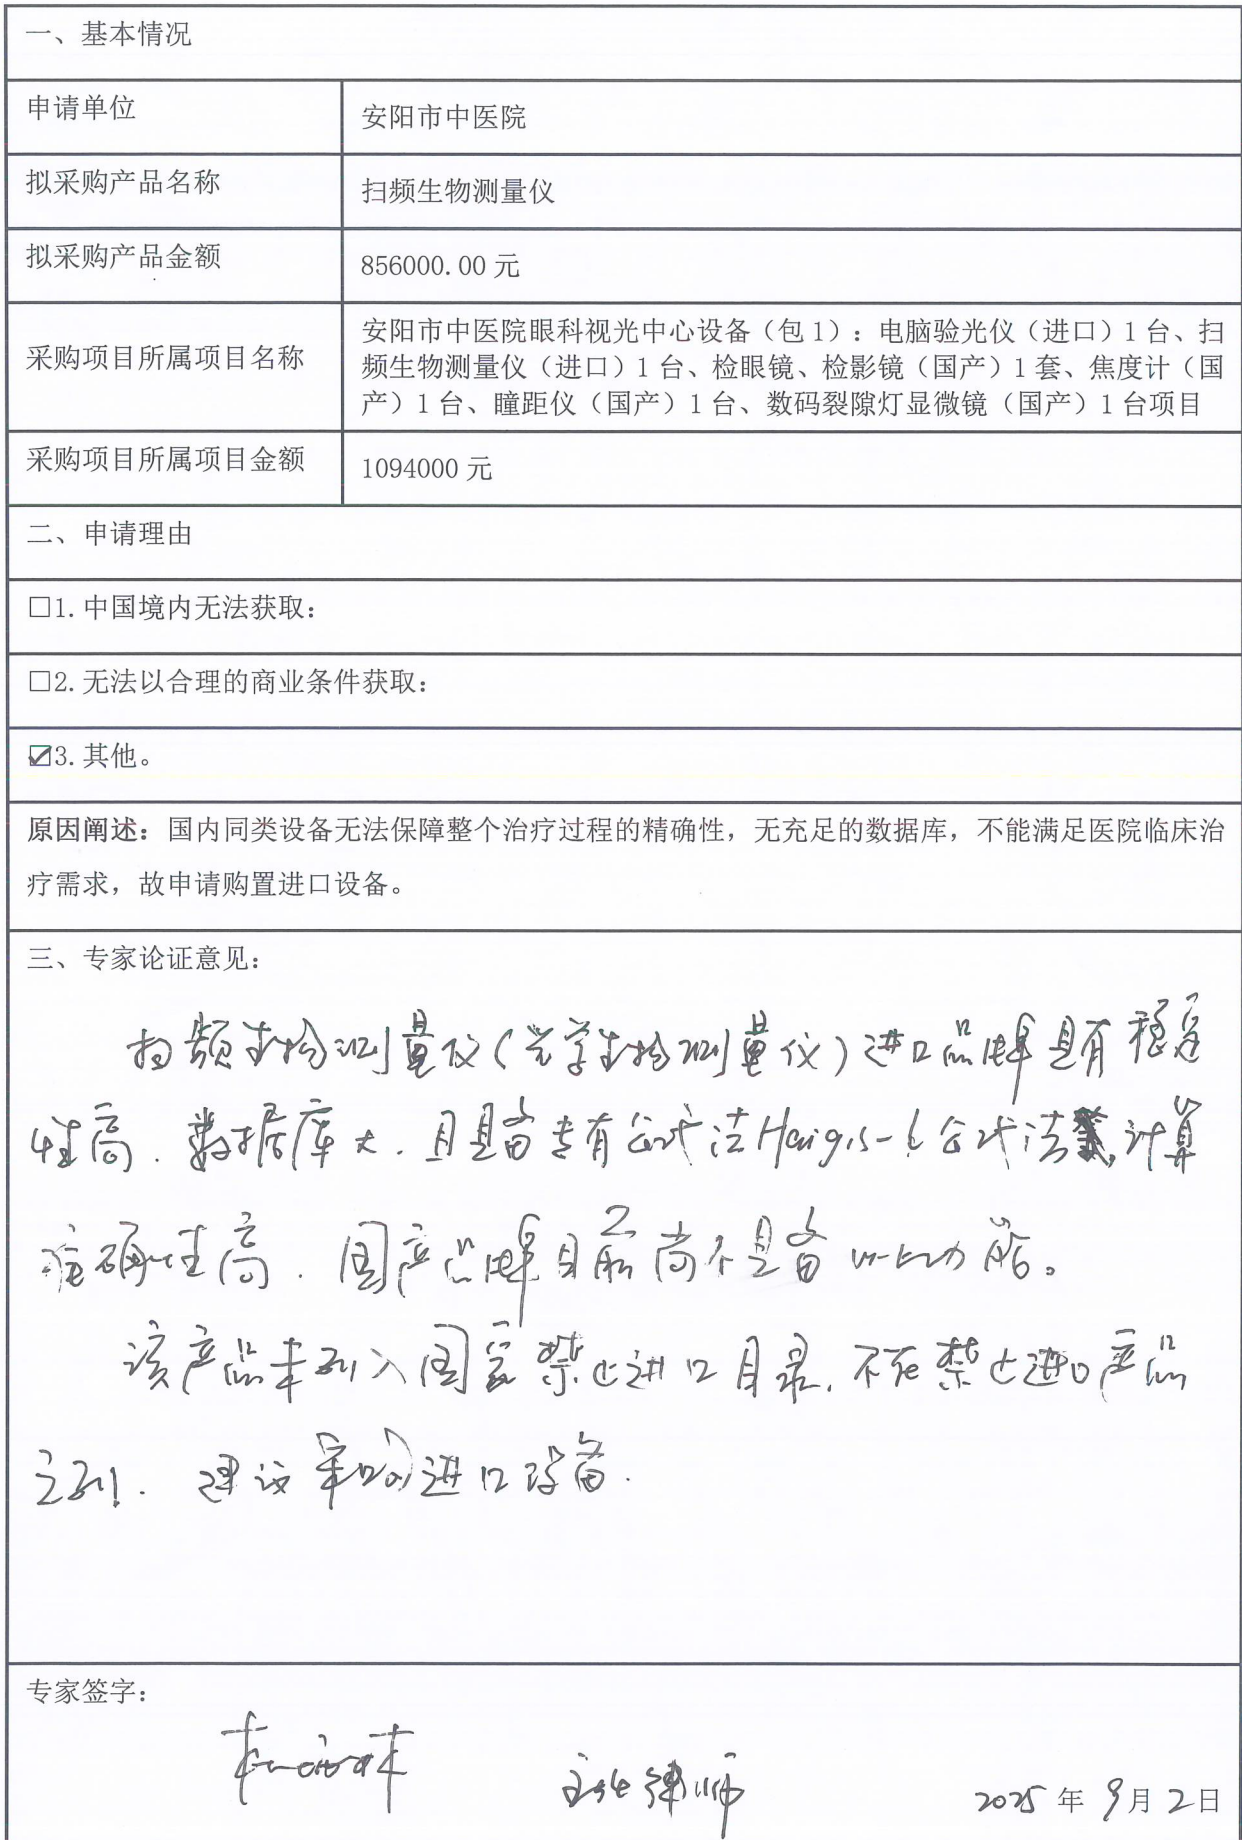 一、基本情况
申请单位
安阳市中医院
拟采购产品名称
扫频生物测量仪
拟采购产品金额
856000.00 元
采购项目所属项目名称
安阳市中医院眼科视光中心设备（包 1）：电脑验光仪（进口）1 台、扫
频生物测量仪（进口）1 台、检眼镜、检影镜（国产）1 套、焦度计（国
产）1 台、瞳距仪（国产）1 台、数码裂隙灯显微镜（国产）1 台项目
采购项目所属项目金额
1094000 元
二、申请理由
□1. 中国境内无法获取：
□2. 无法以合理的商业条件获取：
☑3. 其他。
原因阐述：国内同类设备无法保障整个治疗过程的精确性，无充足的数据库，不能满足医院临床治
疗需求，故申请购置进口设备。
三、专家论证意见：
扫频生物测量仪（光学生物测量仪）进口品牌具有稳定
性高．数据库大．且具备专有公式法Haigis-L公式法，计算
准确性高．国产品牌目前尚不具备以上功能。
该产品未列入国家禁止进口目录，不在禁止进口产品
之列．建议采购进口设备．
专家签字：
主任律师
2025 年 9 月 2 日